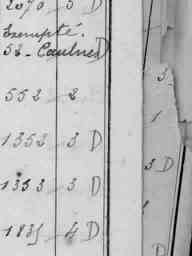 2070 - 3 D
Exempté.
52 - Caulnes D
552 - 2
1352 - 3 D
1353 - 3 D
1835 - 4 D
3
1
3 D
D